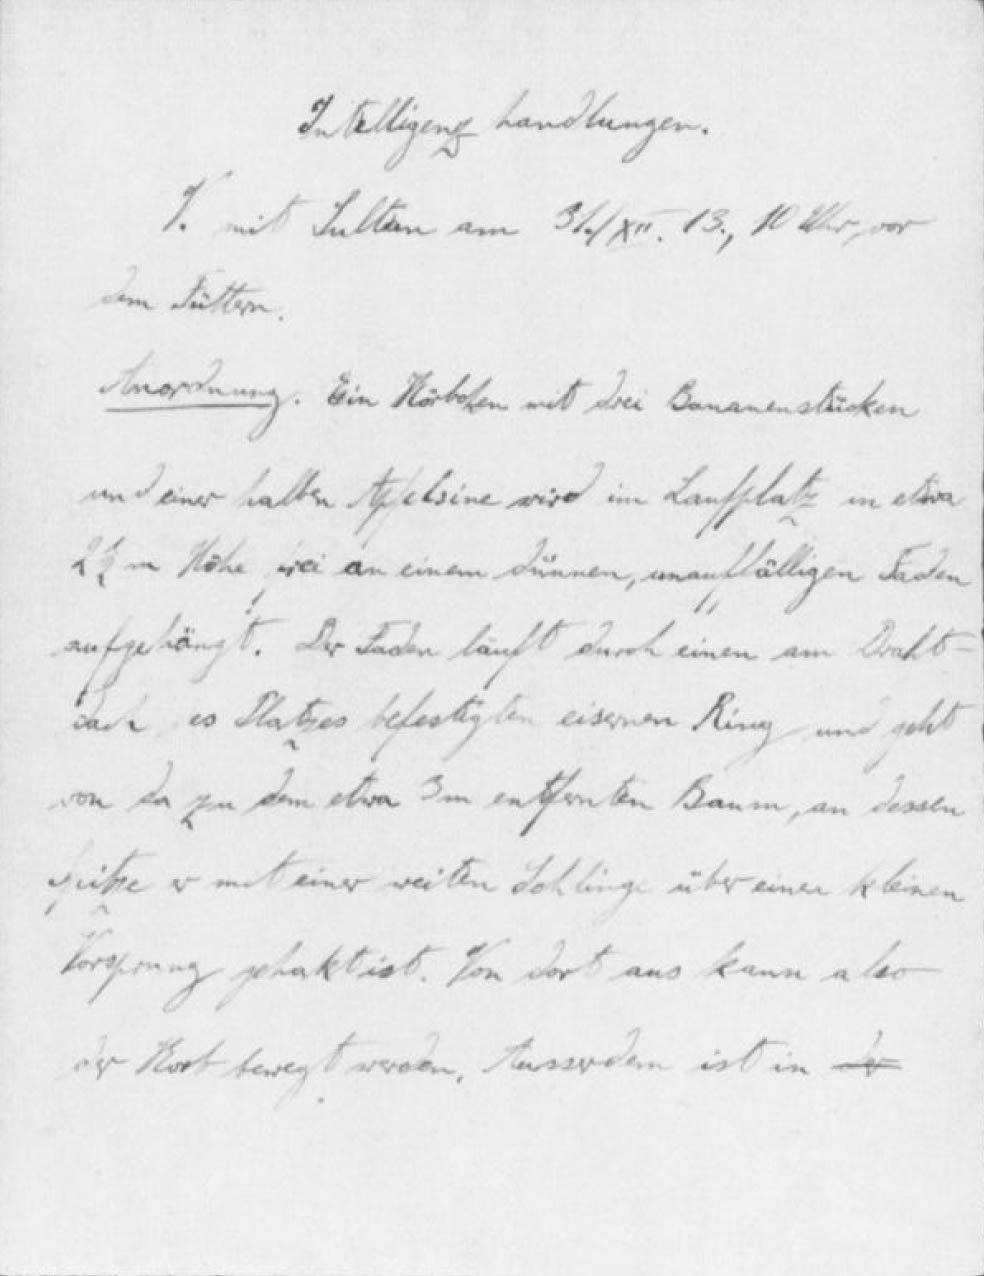 Intelligenzhandlungen.
V. mit Sultan am 31./XII. 13., 10 Uhr, vor
dem Füttern.
Anordnung. Ein Körbchen mit drei Bananenstücken
und einer halben Apfelsine wird im Laufplatz in etwa
2½ m Höhe frei an einem dünnen, unauffälligen Faden
aufgehängt. Der Faden läuft durch einen am Draht-
dach es Platzes befestigten eisernen Ring und geht
von da zu dem etwa 3m entfernten Baum, an dessen
Spitze er mit einer weiten Schlinge über einen kleinen
Vorsprung gehakt ist. Von dort aus kann also
der Korb bewegt werden. Ausserdem ist in der